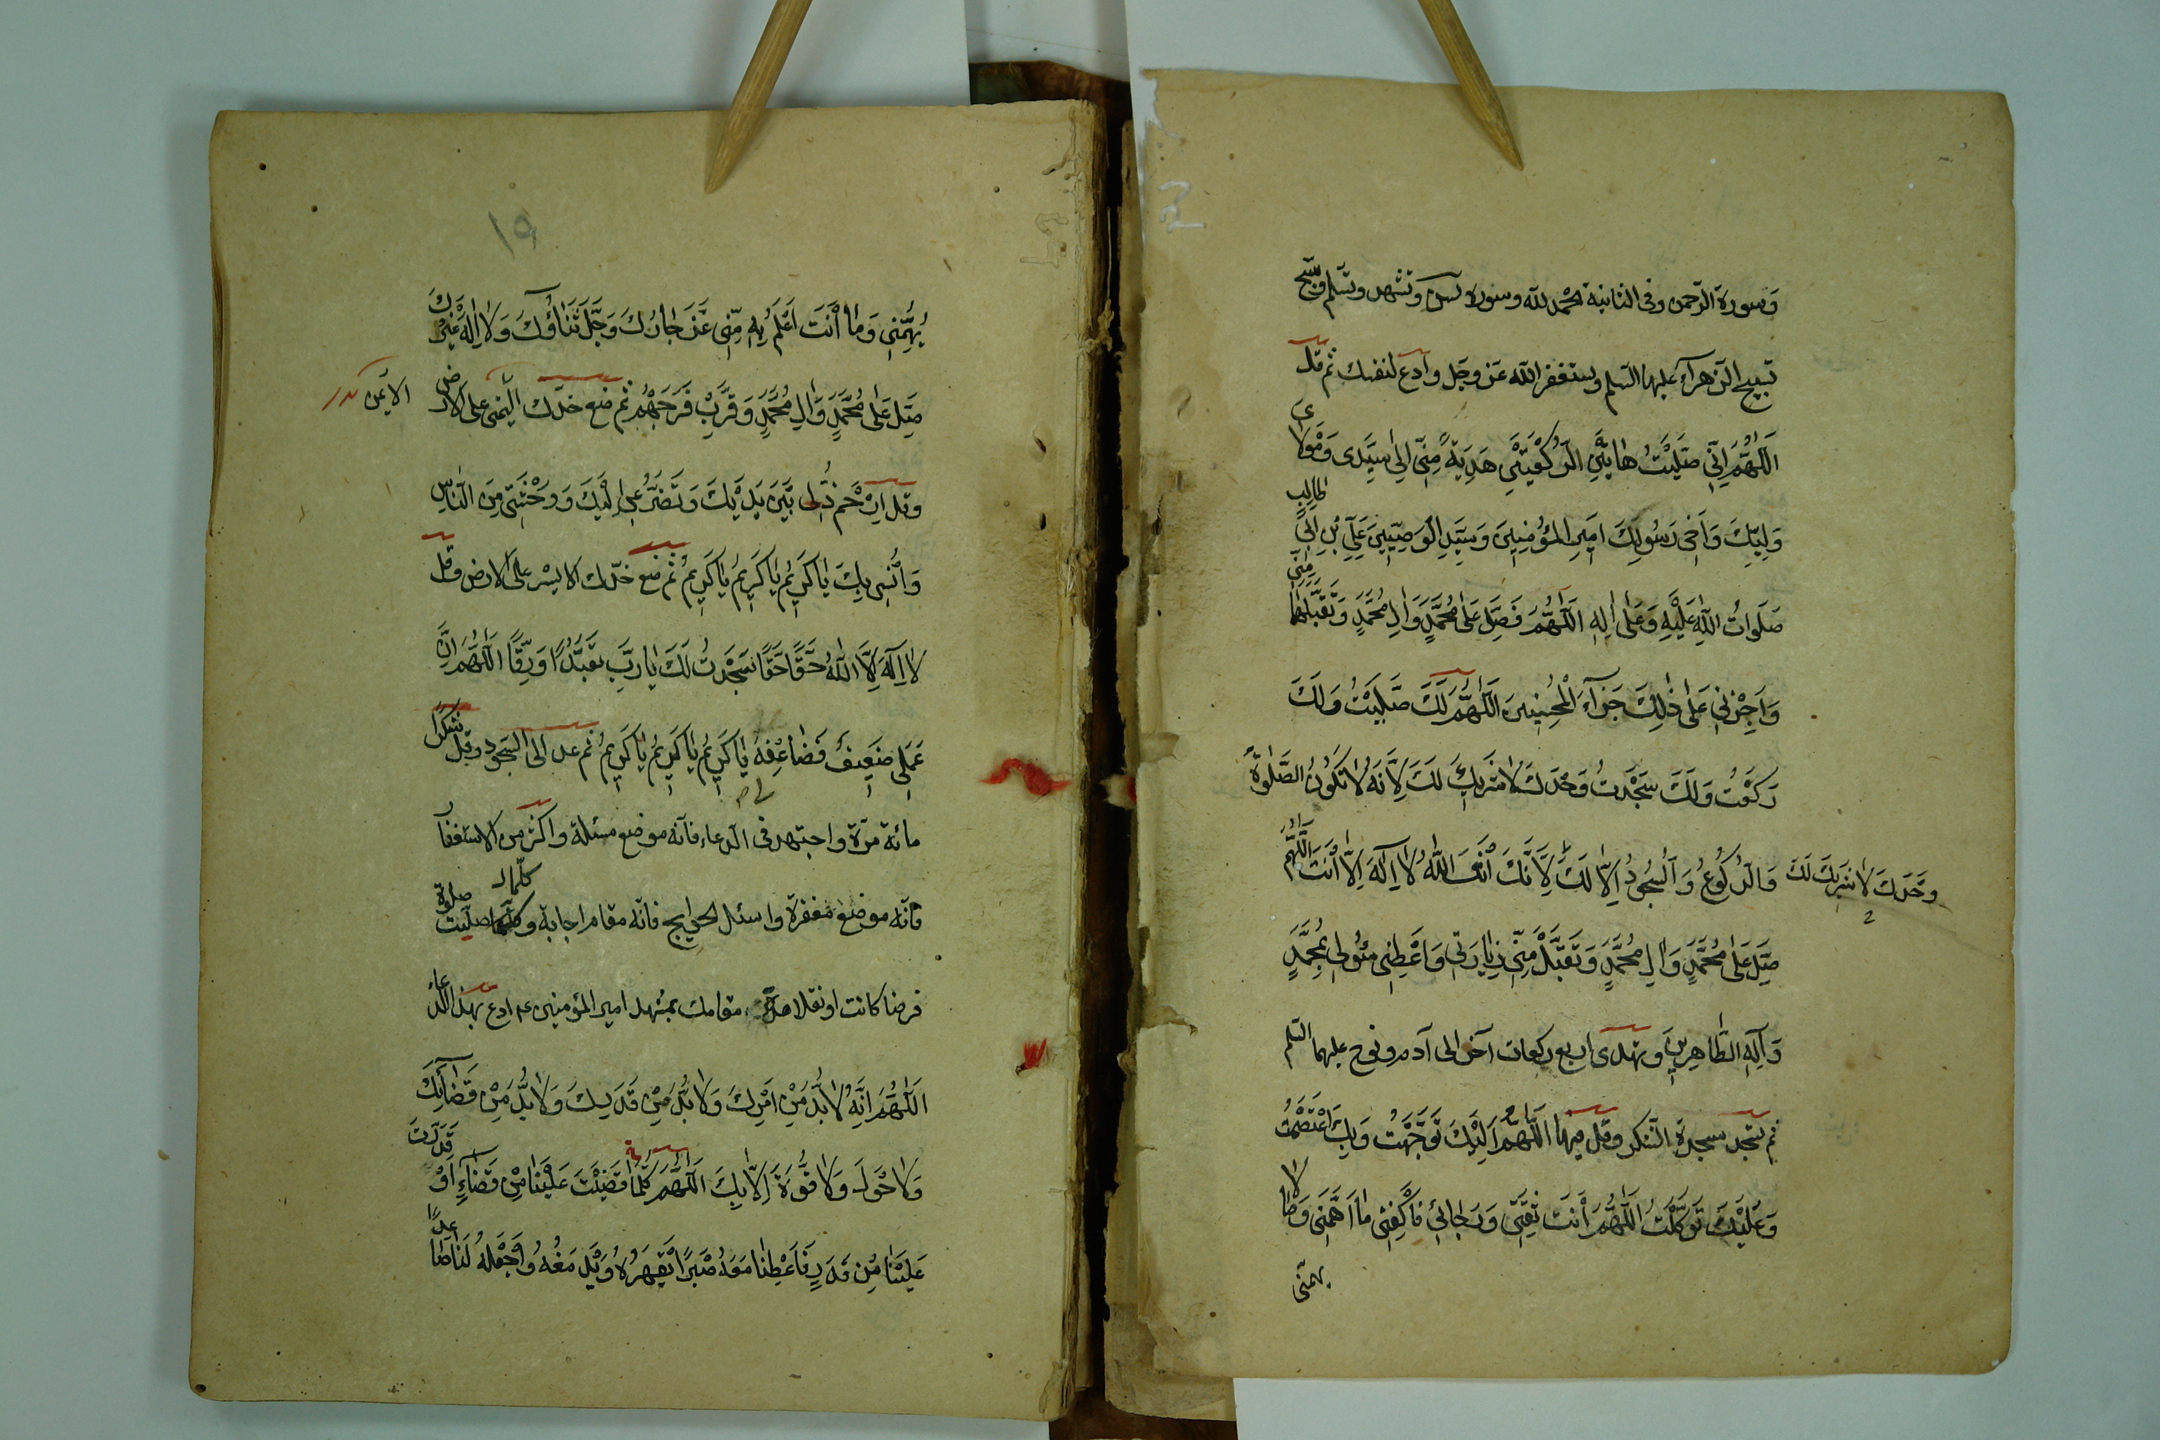 وسورة الرّحمن وفى الثانية الحمد لله وسورة يس وتشهد وتسلّم وتسبّح
تسبيح الزهرآء عليها السلم وتستغفر الله عزّ وجلّ وادع لنفسك ثم قل
اَللّٰهُمَّ اِنّى صَلَّيْتُ هاتَيْنِ الرَّكْعَتَيْنِ هَدِيَّةً مِنّى اِلىٰ سَيِّدى وَمَوْلاىَ
وَلِيِّكَ وَاَخى رَسُولِكَ اَميرِ المُؤْمِنينَ وَسَيِّدِ الْوَصِيّينَ عَلِىِّ بْنِ اَبى طالِبٍ
صَلَواتُ اللّٰهِ عَلَيْهِ وَعَلىٰ الِهِ اَللّٰهُمَّ فَصَلِّ عَلىٰ مُحَمَّدٍ وَالِ مُحَمَّدٍ وَتَقَبَّلْها مِنّى
وَاجْزِنى عَلىٰ ذٰلِكَ جَزآءَ الْمُحْسِنينَ اَللّٰهُمَّ لَكَ صَلَّيْتُ وَلَكَ
رَكَعْتُ وَلَكَ سَجَدْتُ وَحْدَكَ لا شَريكَ لَكَ لِاَنَّهُ لا تَكُونُ الصَّلٰوةُ
وَالرُّكُوعُ وَالسُّجُودُ اِلّا لَكَ لِاَنَّكَ اَنْتَ اللّٰهُ لا اِلٰهَ اِلّا اَنْتَ اَللّٰهُمَّ
وحْدَكَ لا شَريكَ لَكَ
صَلِّ عَلىٰ مُحَمَّدٍ وَالِ مُحَمَّدٍ وَتَقَبَّلْ مِنّى زِيارَتى وَاَعْطِنى سُؤْلى بِمُحَمَّدٍ
وَآلِهِ الطّاهِرينَ وتهدى اربع ركعات آخر الى آدم ونوح عليهما السلم
ثم تسجد سجدة الشكر وقل فيها اَللّٰهُمَّ اِلَيْكَ تَوَجَّهْتُ وَبِكَ اعْتَصَمْتُ
وَعَلَيْكَ تَوَكَّلْتُ اَللّٰهُمَّ اَنْتَ ثِقَتى وَرَجائى فَاكْفِنى ما اَهَمَّنى وَما لا
يهمّنى
١٩
يُهِمُّنى وَما اَنْتَ اَعْلَمُ بِهِ مِنّى عَزَّ جارُكَ وَجَلَّ ثَناؤُكَ وَلا اِلٰهَ غَيْرُكَ
صَلِّ عَلىٰ مُحَمَّدٍ وَالِ مُحَمَّدٍ وَقَرِّبْ فَرَجَهُمْ ثم ضع خدّك اليمنى على الارض
الايمن
وقل اِرْحَمْ ذُلّى بَيْنَ يَدَيْكَ وَتَضَرُّعى اِلَيْكَ وَوَحْشَتى مِنَ النّاسِ
وَاُنْسى بِكَ يا كَريمُ يا كَريمُ يا كَريمُ ثم ضع خدّك الايسر على الارض وقل
لا اِلٰهَ اِلَّا اللّٰهُ حَقًّا حَقًّا سَجَدْتُ لَكَ يا رَبِّ تَعَبُّدًا وَرِقًّا اَللّٰهُمَّ اِنَّ
عَمَلى ضَعيفٌ فَضاعِفْهُ يا كَريمُ يا كَريمُ يا كَريمُ ثم عد الى السجود وقل شكرًا
مائة مرّة واجتهد فى الدعاء فانّه موضع مسئلة واكثر من الاستغفار
فانّه موضع مغفرة واسئل الحوايج فانّه مقام اجابة وكلّما صلّيت صلوة
كلّما
فرضا كانت او نفلا مدّة مقامك بمشهد امير المؤمنين ع ادع بهذا الدعاء
اَللّٰهُمَّ اِنَّهُ لا بُدَّ مِنْ اَمْرِكَ وَلا بُدَّ مِنْ قَدَرِكَ وَلا بُدَّ مِنْ قَضآئِكَ
وَلا حَوْلَ وَلا قُوَّةَ اِلّا بِكَ اَللّٰهُمَّ فَكُلَّما قَضَيْتَ عَلَيْنا مِنْ قَضآءٍ اَوْ قَدَّرْتَ
عَلَيْنا مِنْ قَدَرٍ فَاَعْطِنا مَعَهُ صَبْرًا يَقْهَرُهُ وَيَدْمَغُهُ وَاجْعَلْهُ لَنا صاعدًا